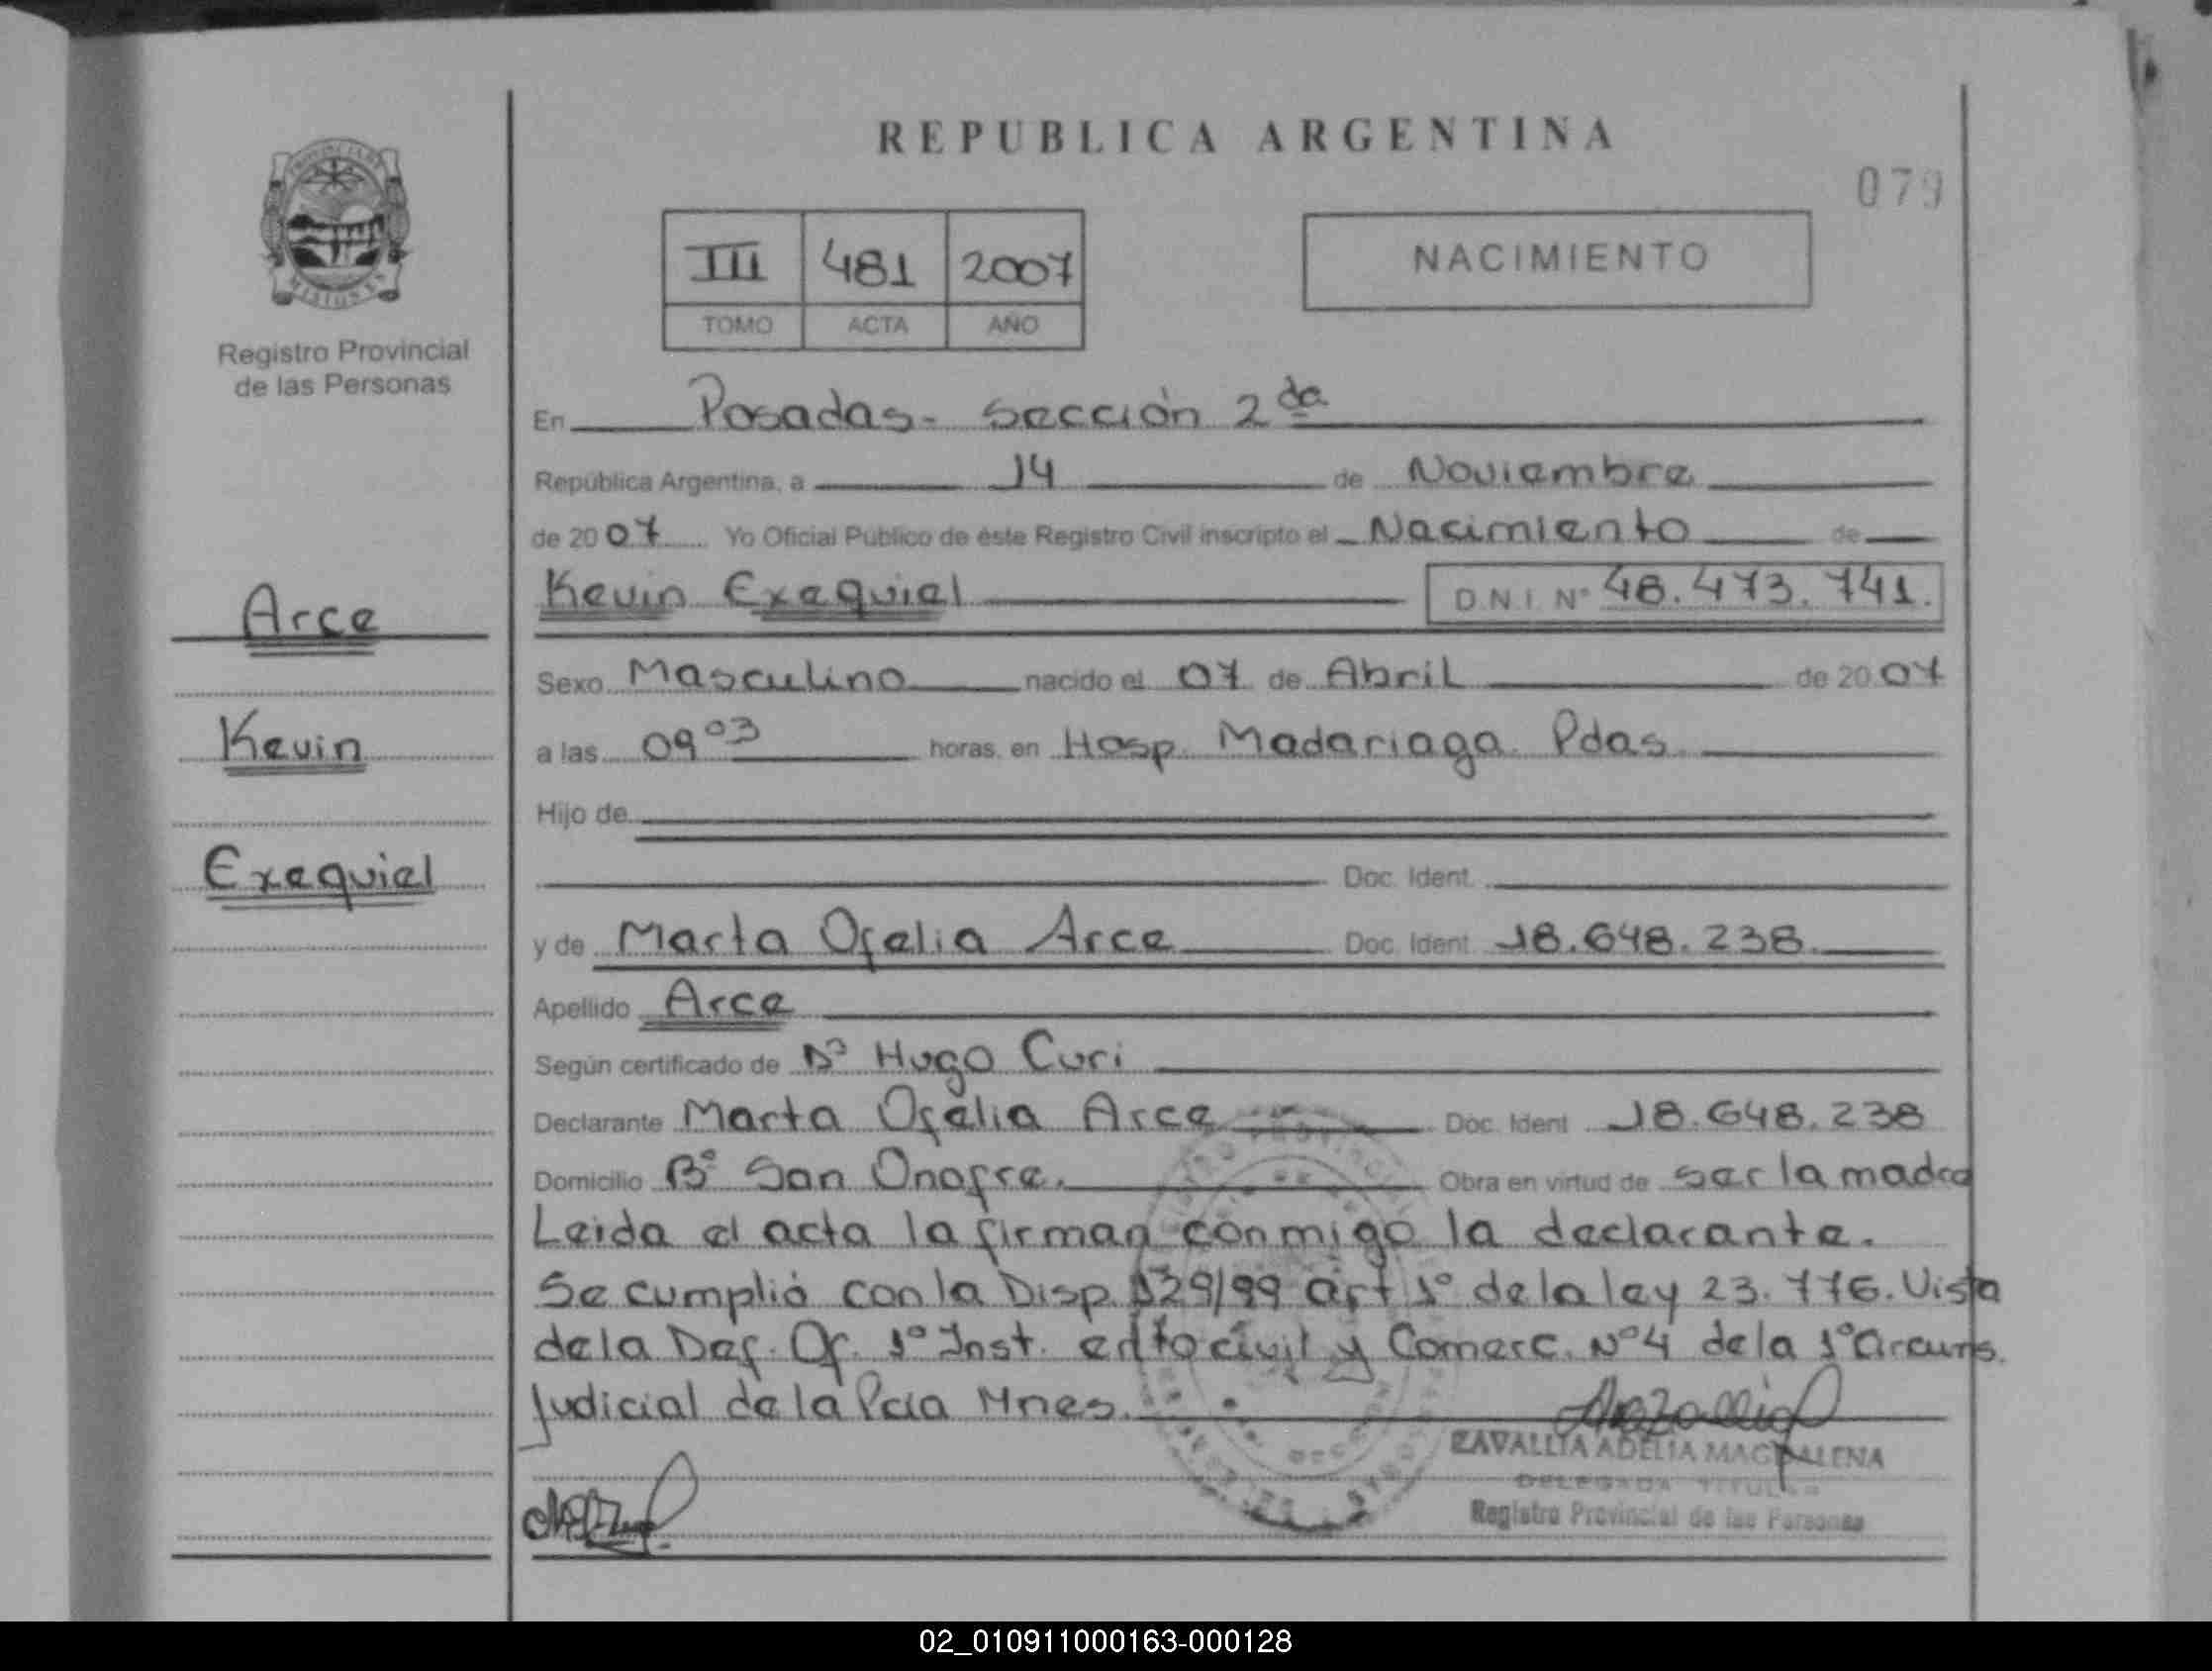 REPUBLICA ARGENTINA
079
PROVINCIA DE
MISIONES
Registro Provincial
de las Personas
III 481 2007
TOMO ACTA AÑO
NACIMIENTO
En Posadas - Sección 2da
República Argentina, a 14 de Noviembre
de 2007 Yo Oficial Público de éste Registro Civil inscripto el Nacimiento de
Arce
Kevin Exequiel D.N.I. Nº 48.473.741.
Sexo Masculino nacido el 07 de Abril de 2007
Kevin
a las 09 03 horas, en Hosp. Madariaga. Pdas.
Hijo de
Exequiel
Doc. Ident.
y de Marta Ofelia Arce Doc. Ident. 18.648.238.
Apellido Arce
Según certificado de Dº Hugo Curi
Declarante Marta Ofelia Arce Doc. Ident. 18.648.238
Domicilio Bº San Onofre. Obra en virtud de ser la madre
Leida el acta la firman conmigo la declarante.
Se cumplió con la Disp. 129/99 art 1º de la ley 23.776. Vista
de la Def. Of. 1º Inst. en lo civil y Comerc. Nº 4 de la 1º Circuns.
Judicial de la Pcia Mnes.
ZAVALLIA ADELIA MAGDALENA
DELEGADA TITULAR
Registro Provincial de las Personas
02_010911000163-000128